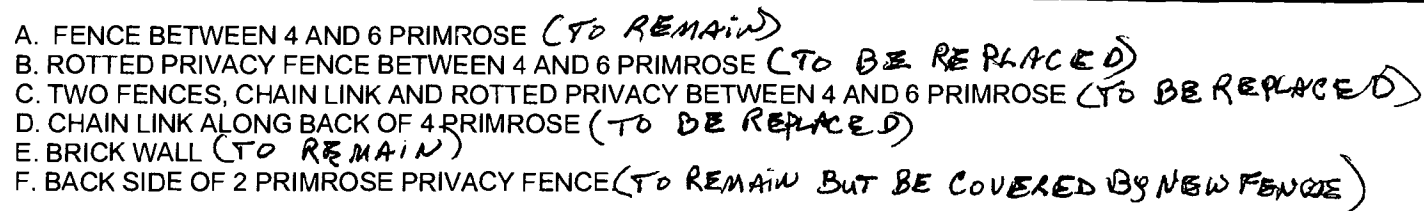 A. FENCE BETWEEN 4 AND 6 PRIMROSE (TO REMAIN)
B. ROTTED PRIVACY FENCE BETWEEN 4 AND 6 PRIMROSE (TO BE REPLACED)
C. TWO FENCES, CHAIN LINK AND ROTTED PRIVACY BETWEEN 4 AND 6 PRIMROSE (TO BE REPLACED)
D. CHAIN LINK ALONG BACK OF 4 PRIMROSE (TO BE REPLACED)
E. BRICK WALL (TO REMAIN)
F. BACK SIDE OF 2 PRIMROSE PRIVACY FENCE (TO REMAIN BUT BE COVERED BY NEW FENCE)